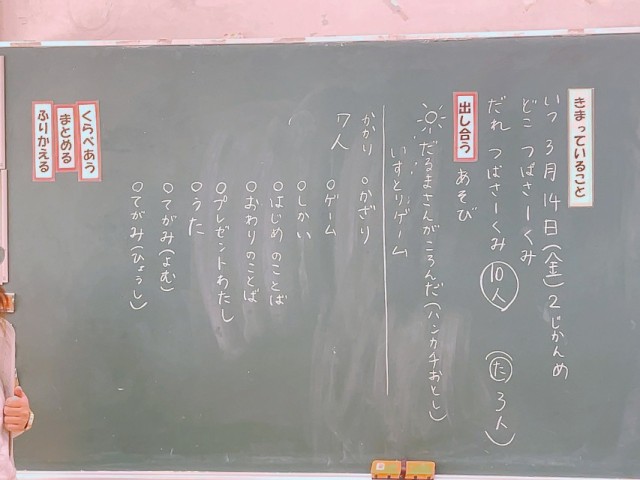 きまっていること
いつ 3月14日(金)2じかんめ
どこ つばさーくみ
だれ つばさーくみ 10人 (た 3人)
出し合う
あそび
だるまさんがころんだ(ハンカチおとし)
いすとりゲーム
かかり ○かざり
7人 ○ゲーム
○しかい
○はじめのことば
○おわりのことば
○プレゼントわたし
○うた
○てがみ(よむ)
○てがみ(ひょうし)
くらべあう
まとめる
ふりかえる